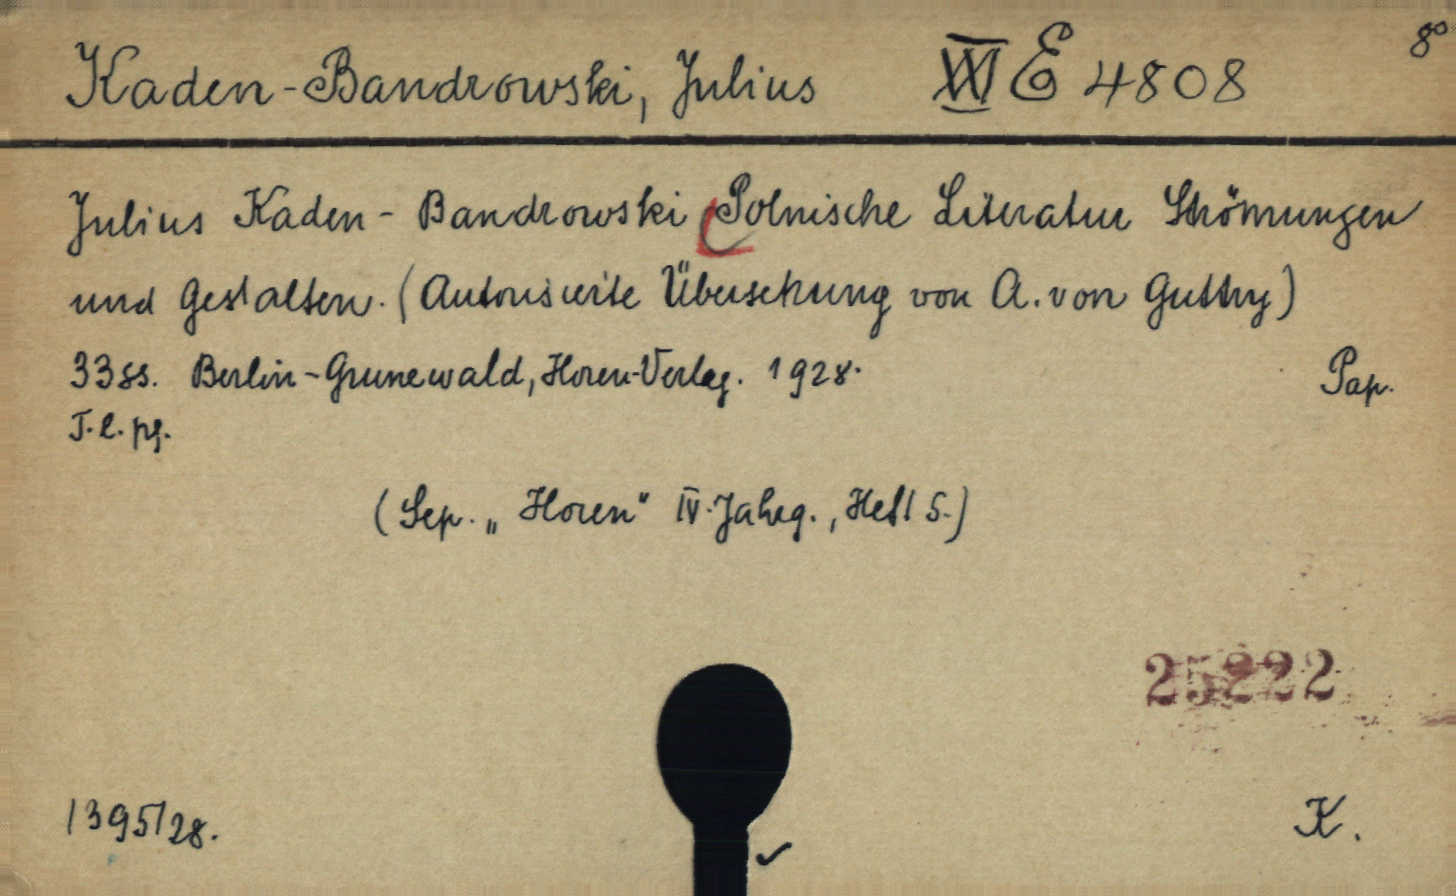 Kaden-Bandrowski, Julius XXI E 4808 8°
Julius Kaden-Bandrowski Polnische Literatur Strömungen
und Gestalten. (Autorisierte Übersetzung von A. von Guttry)
33 ss. Berlin-Grunewald, Horen-Verlag. 1928.
Pap.
T. l. pg.
(Sep. „Horen" IV. Jahrg., Heft 5.)
25222
1395/28.
K.